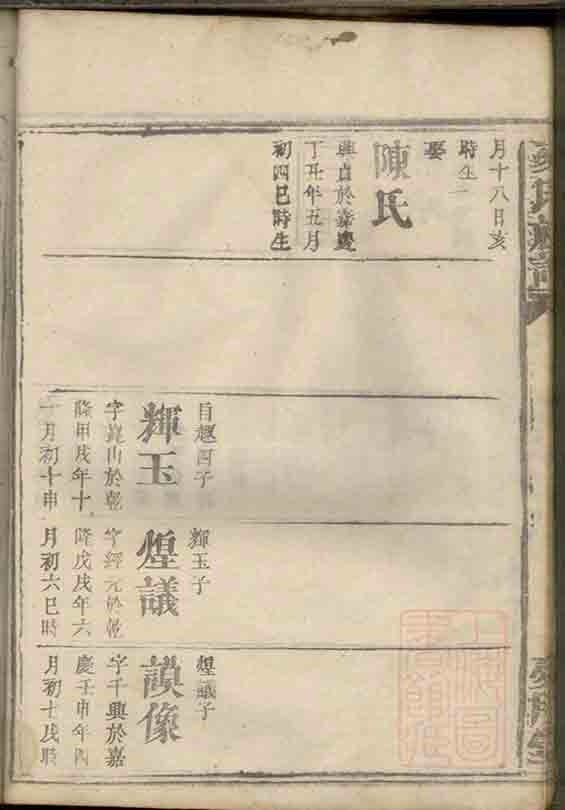 月十八日亥
時生
娶
陳氏
興貞於嘉慶
丁丑年五月
初四巳時生
目趣四子
輝玉
字崑山於乾
隆甲戌年十
一月初十申
輝玉子
煌議
字經元於乾
隆戊戌年六
月初六巳時
煌議子
謨像
字千興於嘉
慶壬申年四
月初七戌時